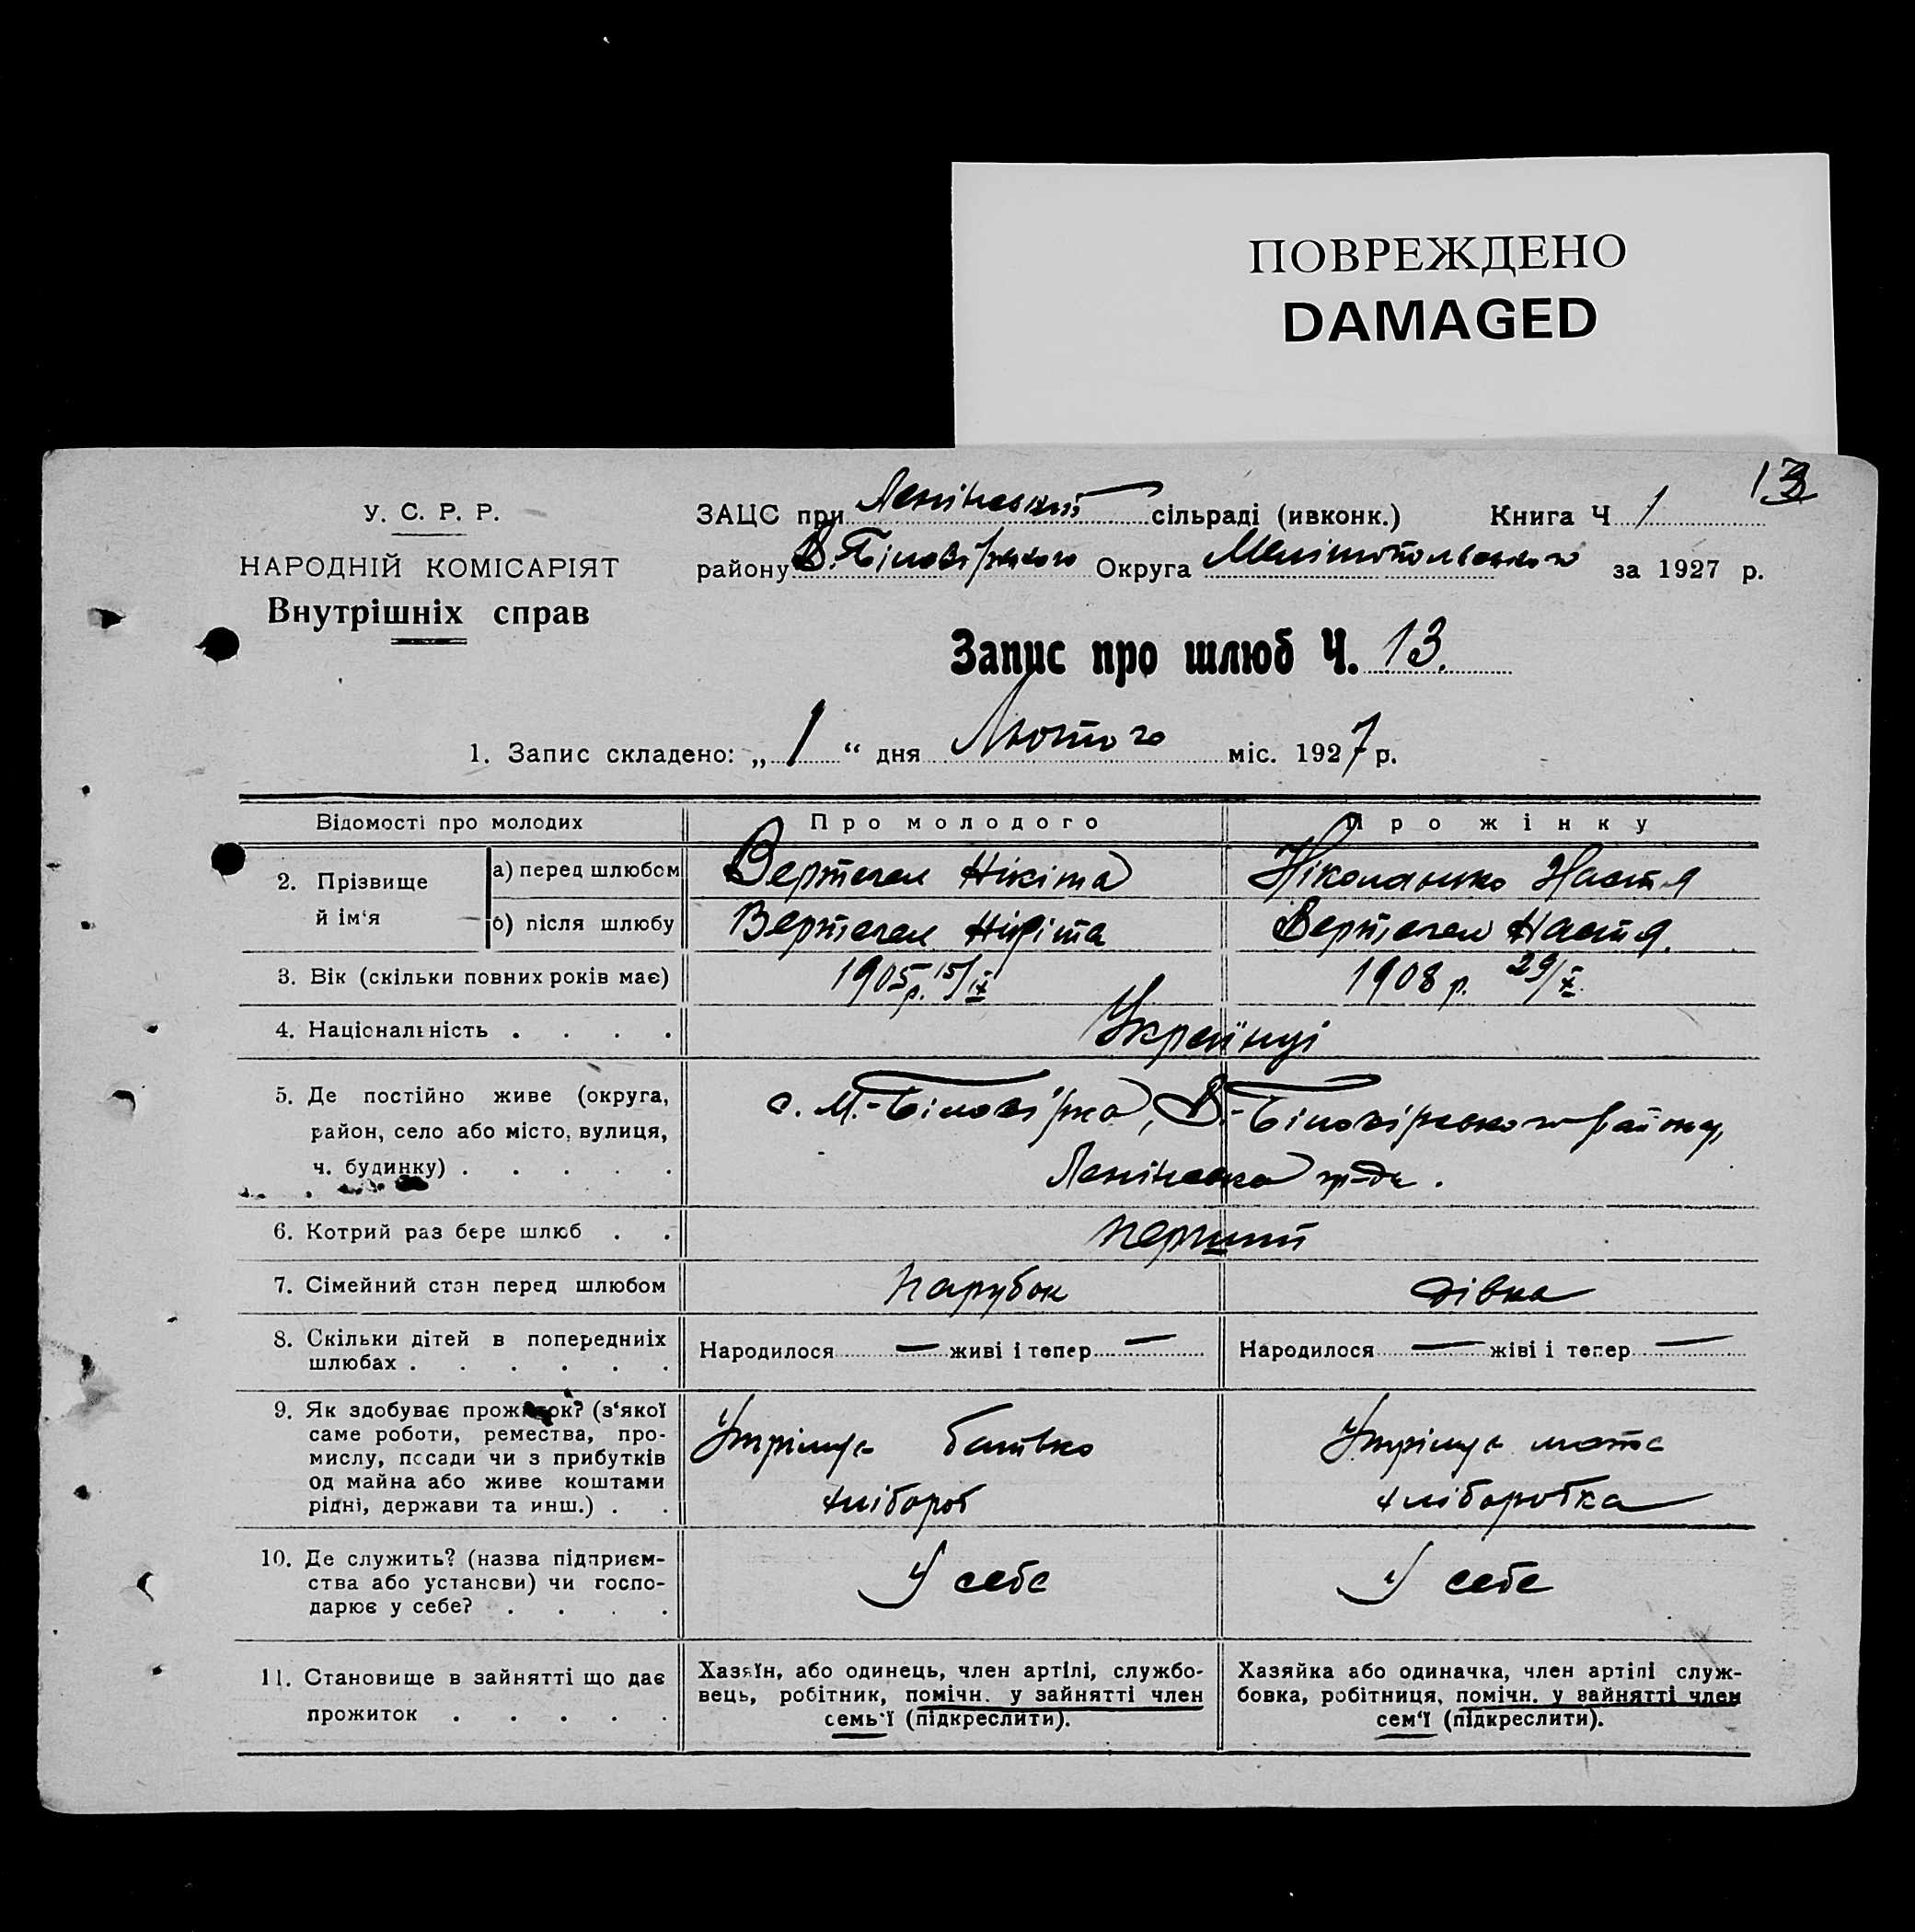 ПОВРЕЖДЕНО
DAMAGED
13
У. С. Р. Р.
НАРОДНІЙ КОМІСАРІЯТ
Внутрішніх справ
ЗАЦС при Ленінській сільраді (ивконк.) Книга Ч 1
району В.-Білозірського Округа Мелітопольського за 1927 р.
Запис про шлюб Ч. 13.
1. Запис складено: „ 1 “ дня Лютого міс. 1927 р.
Відомості про молодих Про молодого Про жінку
2. Прізвище й ім‘я
а) перед шлюбом Вертегел Нікіта Ніколаенко Настя
б) після шлюбу Вертегел Нікіта Вертегел Настя.
3. Вік (скільки повних років має) 1905 р. 15/IX 1908 р. 29/X
4. Національність . . . . Українці
5. Де постійно живе (округа,
район, село або місто, вулиця,
ч. будинку) . . . . .
с. М.-Білозірка, В.-Білозірського району,
Ленінська
6. Котрий раз бере шлюб . . перший
7. Сімейний стан перед шлюбом Парубок дівка
8. Скільки дітей в попередниіх
шлюбах . . . . . .
Народилося — живі і тепер — Народилося — жіві і тепер —
9. Як здобуває прожиток? (з‘якої
саме роботи, ремества, про-
мислу, посади чи з прибутків
од майна або живе коштами
рідні, держави та инш.) . .
Утрімує батько
хлібороб
Утрімує мати
хліборобка
10. Де служить? (назва підприєм-
ства або установи) чи госпо-
дарює у себе? . . . .
У себе У себе
11. Становище в зайнятті що дає
прожиток . . . . .
Хазяїн, або одинець, член артілі, службо-
вець, робітник, помічн. у зайнятті член
семь‘ї (підкреслити).
Хазяйка або одиначка, член артілі служ-
бовка, робітниця, помічн. у зайнятті член
сем‘ї (підкреслити).